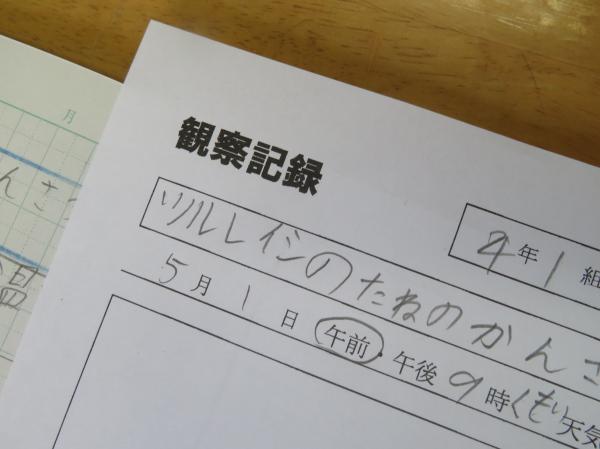 月
んさ
温
観察記録
4年1組
ツルレイシのたねのかんさ
5月1日 午前・午後9時くもり天気